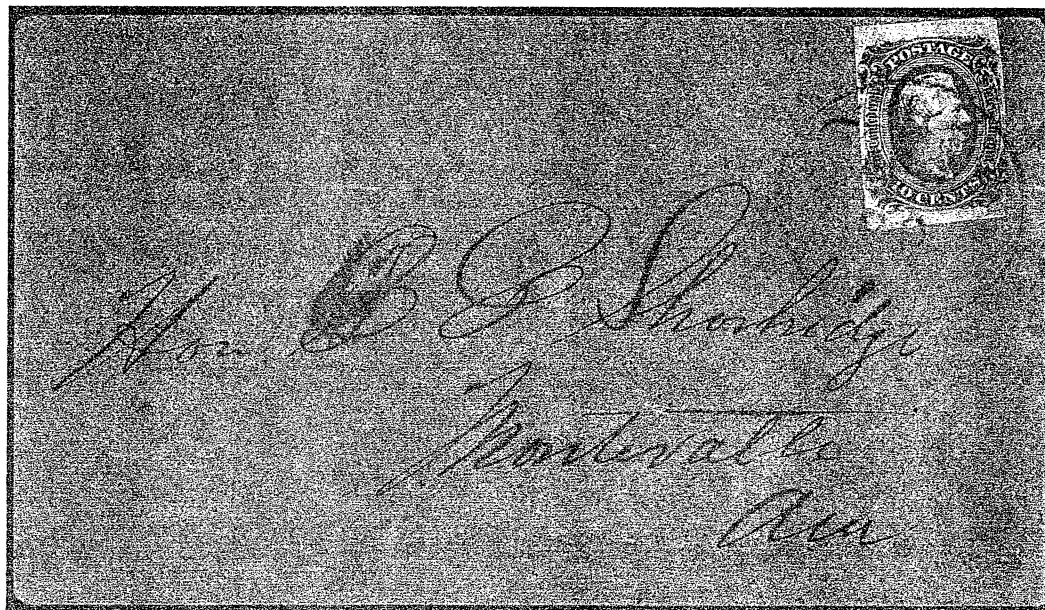 POSTAGE
10 CENTS
Hon B P Shortridge
Montevallo
Ala